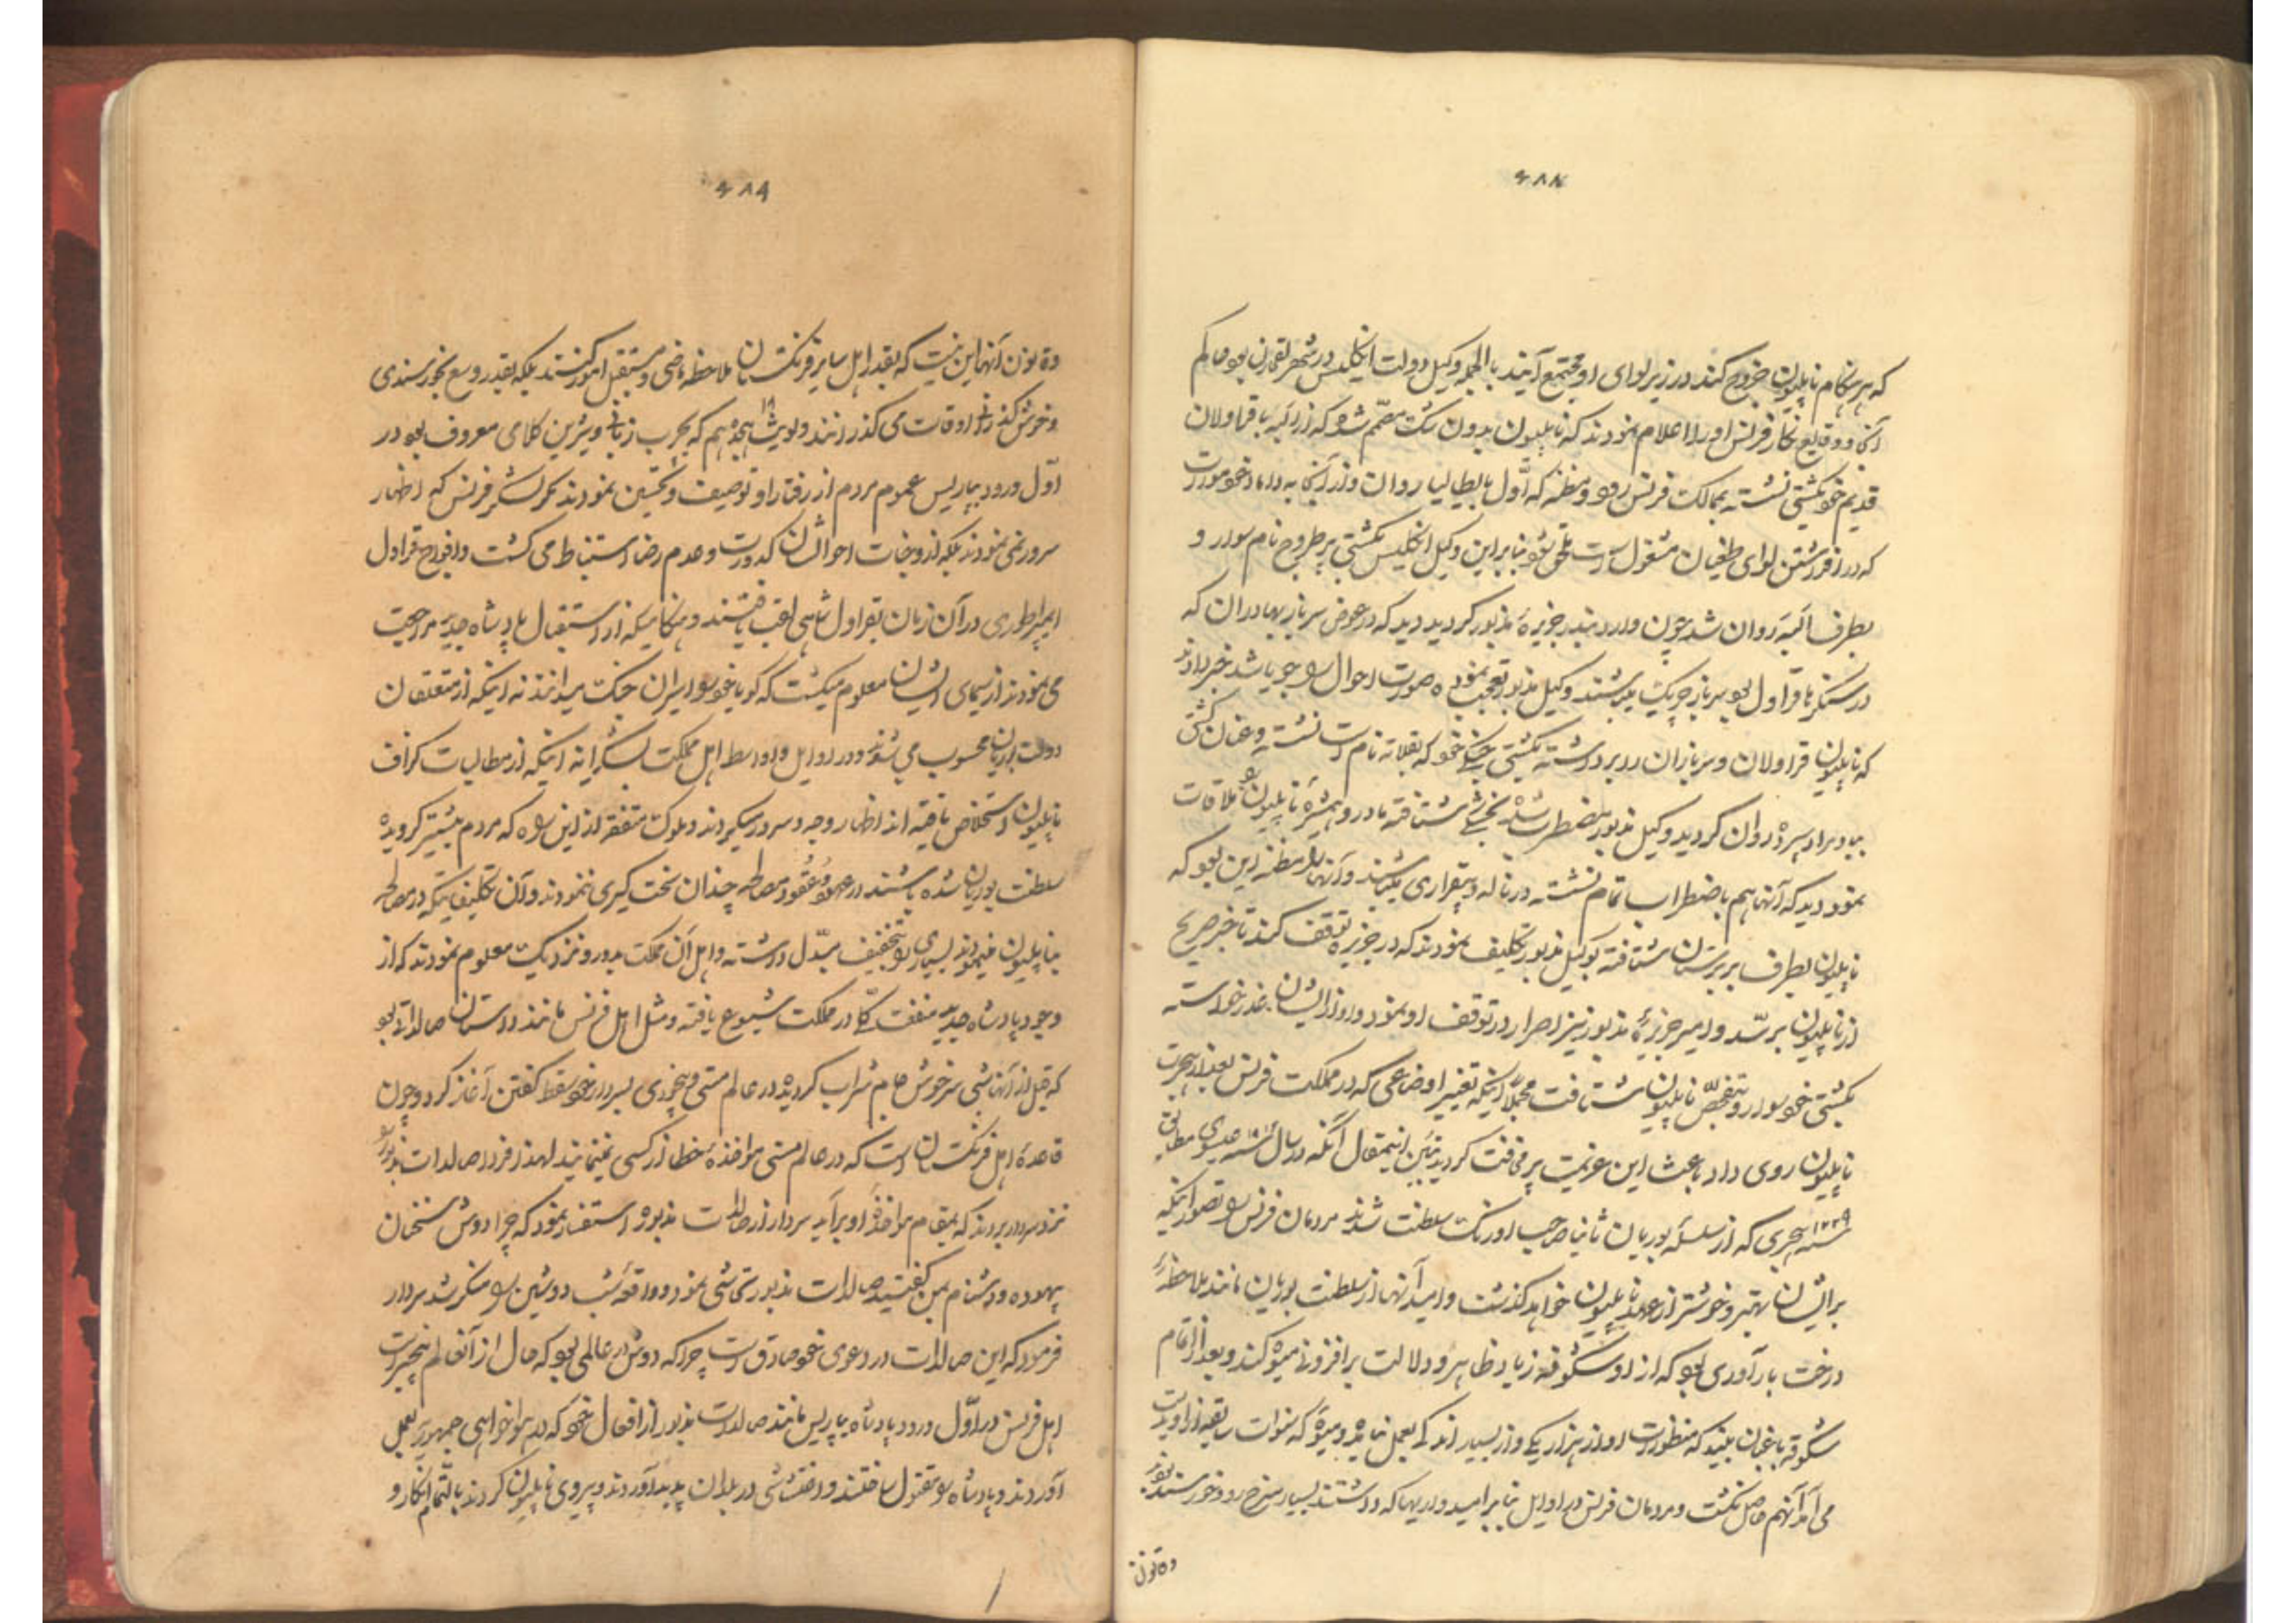 ۴۸۸
که هر هنگام ناپلیون خروج کند در زیر لوای او مجتمع آیند بالجمله وکیل دولت انگلیس در شهر بود حاکم
آنجا و وقایع نگار فرانس او را اعلام نمودند که ناپلیون بدون شک مصمم شده که از البه با قراولان
قدیم خود بکشتی نشسته بممالک فرانس رود و مظنه که اول بایطالیا روان و از آنجا به داماد خود مورات
که در افراشتن لوای طغیان مشغول است ملحق شود بنابراین وکیل انگلیس بکشتی نام سوار و
بطرف البه روان شد چون وارد بندر جزیرهٔ مذبور گردید دید که در عوض سرباز بهادران که
در سنگرها قراول بود سرباز چریک میباشند وکیل مذبور تعجب نموده صورت احوال را جویا شد خبر دادند
که ناپلیون قراولان و سربازان را برداشته بکشتی جنگی خود که نام است نشسته و عنان کشتی
بباد مراد سپرده روان گردید وکیل مذبور مضطرب شده شتافته مادر و همشیرهٔ ناپلیون را ملاقات
نمود دید که آنها هم باضطراب تمام نشسته در ناله و بیقراری میباشند و آنها را مظنه این بود که
ناپلیون بطرف بربرستان شتافته بوکیل مذبور تکلیف نمودند که در جزیره توقف کند تا خبر صریح
از ناپلیون برسد و امیر جزیرهٔ مذبور نیز اصرار در توقف او نمود و او از ایشان عذر خواسته
بکشتی خود سوار و بتفحص ناپلیون شتافت مجملا اینکه تغییر اوضاعی که در مملکت فرانس بعد از هجرت
ناپلیون روی داد باعث این عزیمت پر آفت گردید تبیین اینمقال آنکه در سال ۱۸۱۴ عیسوی مطابق
سنه ۱۲۲۹ هجری که از سلسلهٔ بوربان ثانیا صاحب اورنگ سلطنت شدند مردمان فرانس را تصور اینکه
بر ایشان بهتر و خوشتر از عهد ناپلیون خواهد گذشت و امید آنها از سلطنت بوربان مانند ملاحظهٔ
درخت بارآوری بود که از او شکوفه زیاد ظاهر و دلالت بر افزونی میوه کند و بعد از اتمام
شکوفه باغبان بیند که منظورات او از هزار یکی و از بسیار اندکی بعمل نیامده و میوهٔ که سنوات سابقه از او بدست
می آمد آنهم حاصل نگشت و مردمان فرانس در اوایل بنابر امیدواریها که داشتند بسیار فرح رو و خورسند بودند
و قانون
۴۸۹
و قانون آنها این نیست که بقدر اهل سایر فرنگستان ملاحظه ماضی و مستقبل امور کنند بلکه بقدر وسع بخورسندی
و خوش گذرانی اوقات می گذرانند و لویش ۱۸ هیجدهم که بچرب زبانی و شیرین کلامی معروف بود در
اول ورود بپاریس عموم مردم از رفتار او توصیف و تحسین نمودند مگر لشکر فرانس که اظهار
سرور نمی نمودند بلکه از وجنات احوالشان کدورت و عدم رضا استنباط می گشت و افواج قراول
ایمپراطوری در آن زمان بقراول شاهی لقب یافتند و هنگامیکه از استقبال پادشاه جدید مراجعت
می نمودند از سیمای ایشان معلوم میگشت که گویا خود را اسیران جنگ میدانند نه اینکه از متعلقان
دولت بوربان محسوب می شوند و در اوایل و اواسط اهل مملکت بشکرانه اینکه از مطالبات گزاف
ناپلیون استخلاص یافته اند اظهار وجد و سرور میکردند و ملوک متفقه از این راه که مردم بیشتر گرویده
سلطنت بوربان شده باشند در عهود و عقود مصالحه چندان سخت گیری ننمودند و آن تکلیفاتیکه در مصالحه
بناپلیون مینمودند بسیاری را بتخفیف مبدل داشته و اهل آن مملکت بدور و نزدیک معلوم نمودند که از
وجود پادشاه جدید منفعت کلی در مملکت شیوع یافته و مثل اهل فرانس مانند داستان صالداتی بود
که قبل از آن شبی سرخوش جام شراب گردیده در عالم مستی و بیخودی بسردار خود سقط گفتن آغاز کرد و چون
قاعدهٔ اهل فرنگستان است که در عالم مستی مواخذهٔ خطا از کسی نمینمایند لهذا فردا صالدات مذبور را
نزد سردار بردند که بمقام مواخذهٔ او برآید سردار از صالدات مذبور استفسار نمود که چرا دوش سخنان
بیهوده و دشنام بمن گفتی صالدات مذبور تحاشی نمود و واقعهٔ شب دوشین را منکر شد سردار
فرمود که این صالدات در دعوی خود صادق است چرا که دوش در عالمی بود که حال از آنعالم بیخبر است
اهل فرانس در اول ورود پادشاه بپاریس مانند صالدات مذبور از افعال خود که در هواخواهی جمهور بعمل
آوردند و پادشاه را مقتول ساختند و اغتشاشی در بلدان پدید آوردند و پیروی ناپلیون کردند بالتمام انکار و